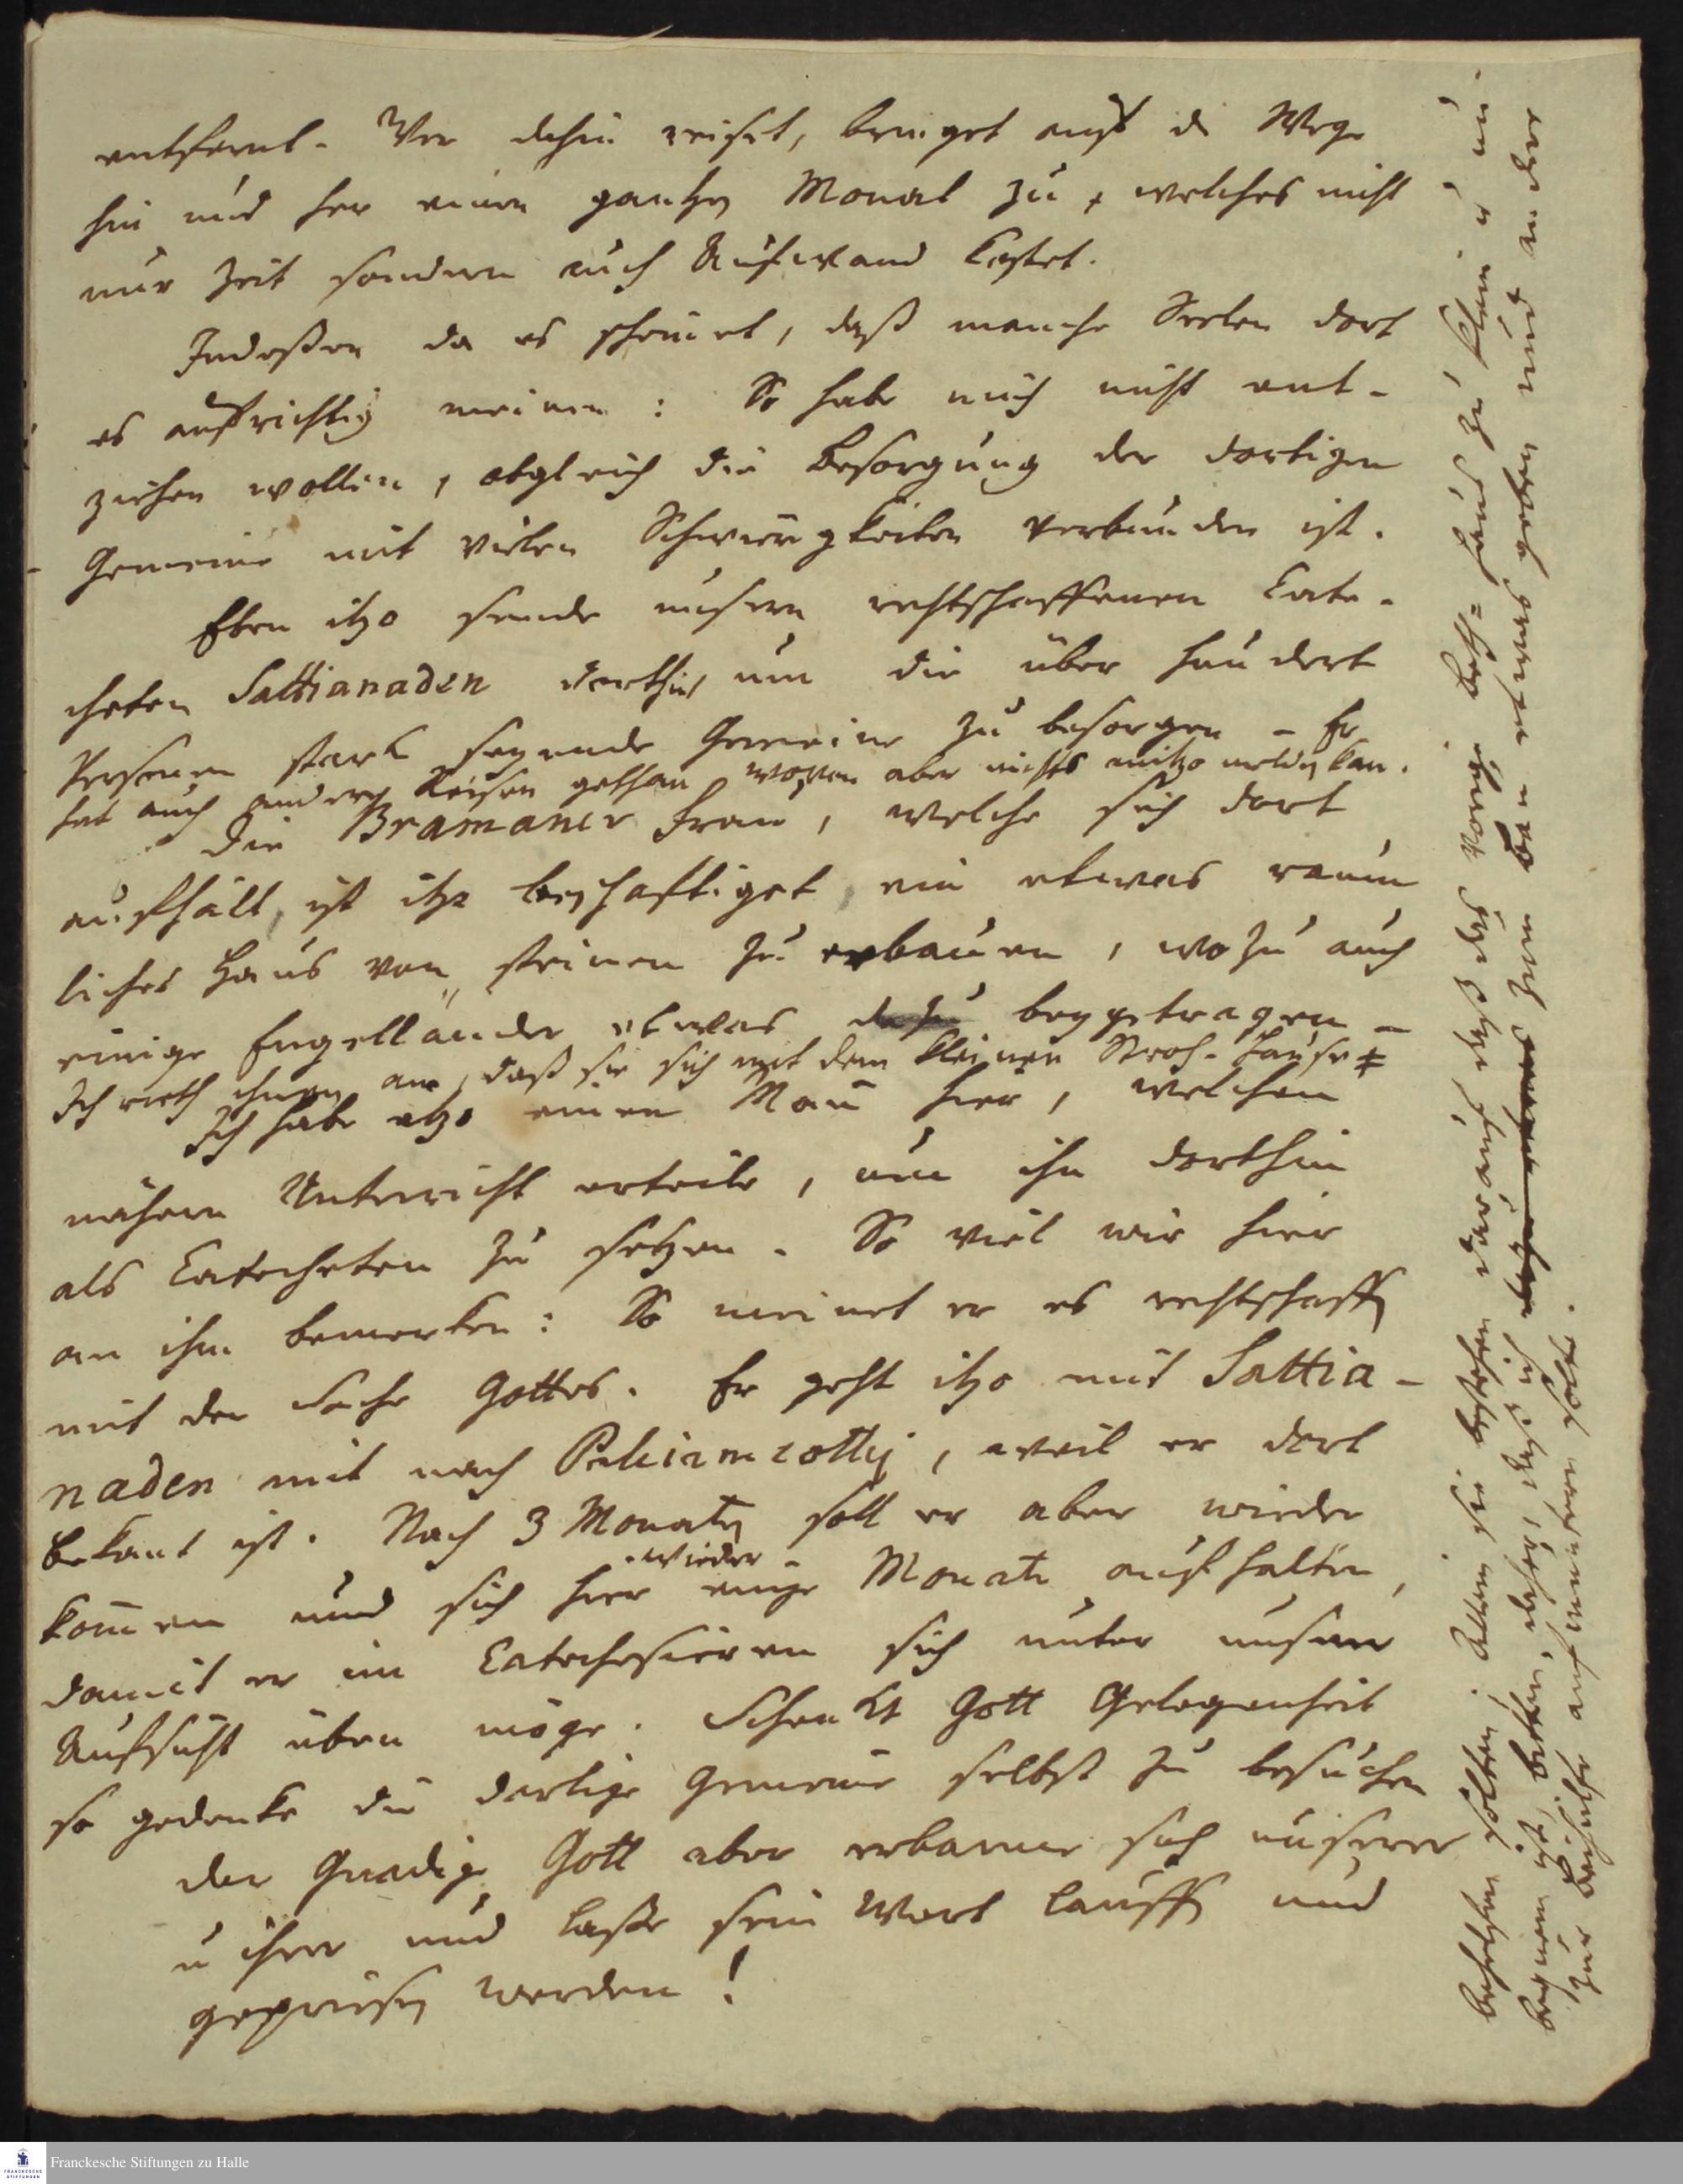 entfernt. Wer dahin reiset, bringet auf de Wege
hin und her einen gantzen Monat zu, welches nicht
nur Zeit sondern auch Aufwand kostet.
Indeßen da es scheinet, daß manche Seelen dort
es aufrichtig meinen: So habe mich nicht ent-
ziehen wollen, obgleich die Besorgung der dortigen
Gemeine mit vielen Schwürigkeiten verbunden ist.
Eben itzo sende unsern rechtschaffenen Cate-
cheten Sattianaden dorthin, um die über hundert
Personen stark seyende Gemeine zu besorgen – Er
hat auch andere Reisen gethan, wovon aber nichts anitzo melden kan.
Die Bramaner Frau, welche sich dort
aufhält, ist itzo beschäftiget, ein etwas räum
liches Haus von steinen zu erbauen, wozu auch
einige Engelländer etwas beygetragen –
Ich rieth ihnen an, daß sie sich mit dem kleinen Stroh-Hause ‡
Ich habe itzo einen Mañ hier, welchem
nähern Unterricht erteile, um ihn dorthin
als Catecheten zu setzen. So viel wir hier
an ihm bemerken: So meinet er es rechtschaffen
mit der Sache Gottes. Er geht itzo mit Sattia-
naden mit nach Paleiamcotty, weil er dort
bekant ist. Nach 3 Monaten soll er aber wieder
kom̄en und sich hier wieder einige Monate aufhalten,
damit er im Catechesieren sich unter unserer
Aufsicht üben möge. Schenkt Gott Gelegenheit
so gedenke die dortige Gemeine selbst zu besuchen
der Gnädige Gott aber erbarme sich unserer
u ihrer und laße sein Wort lauffen und
gepriesen werden!
behelfen solten; Allein sie bestehen darauf, daß das vorige Beth-Haus zu klein u un-
bequem ist, bitten, daher, daß ich zum Bau etwas geben und andere
zur Beihülfe aufmuntern solte.
Franckesche Stiftungen zu Halle